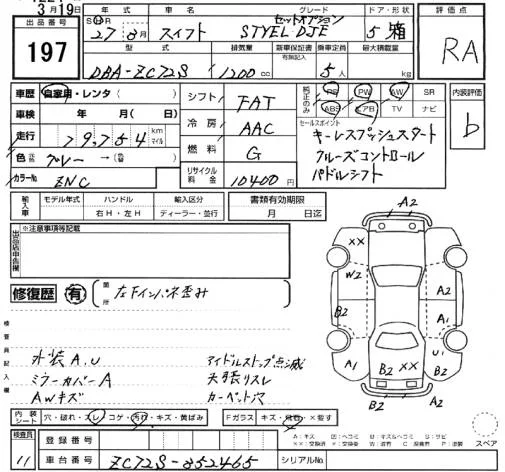 3月19日
出品番号 年式 車名 グレード ドア・形状 評価点
197
S H R 27 8月 スイフト セットオプション STYEL DJE 5 箱 RA
型式 排気量 新車保証書 有無記入 乗車定員 最大積載量
DBA-ZC72S 1200 cc 5人 kg
車歴 自家用・レンタ ( ) シフト FAT 純正のみ PS PW AW SR 内装評価
車検 年 月( 日) 冷房 AAC ABS エアB TV ナビ b
走行 79,754 km マイル 燃料 G セールスポイント
キーレスプッシュスタート
色 グレー → (色 ) クルーズコントロール
カラーNo ZNC リサイクル料金 10400円 パドルシフト
輸入車 モデル年式 ハンドル 輸入区分 書類有効期限
右H・左H ディーラー・並行 月 日迄
出品店申告欄 ※注意事項等記載
修復歴 有 箇所 左Fインパネ歪み
検査員記入欄
外装A,U アイドルストップ点滅
ミラーカバーA 天張リスレ
AWキズ カーペット穴
A2
XX
W2 A2
B2 A1
A1 U1
B2 XX B2
B2 A2
内装シート 穴・破れ・スレ・コゲ・汚れ・キズ・黄ばみ Fガラス キズ・飛石・×要す
A:キズ U:凹 B:U・キズ
スペア
検査員 登録番号
11 車台番号 ZC72S-352465 シリアルNo